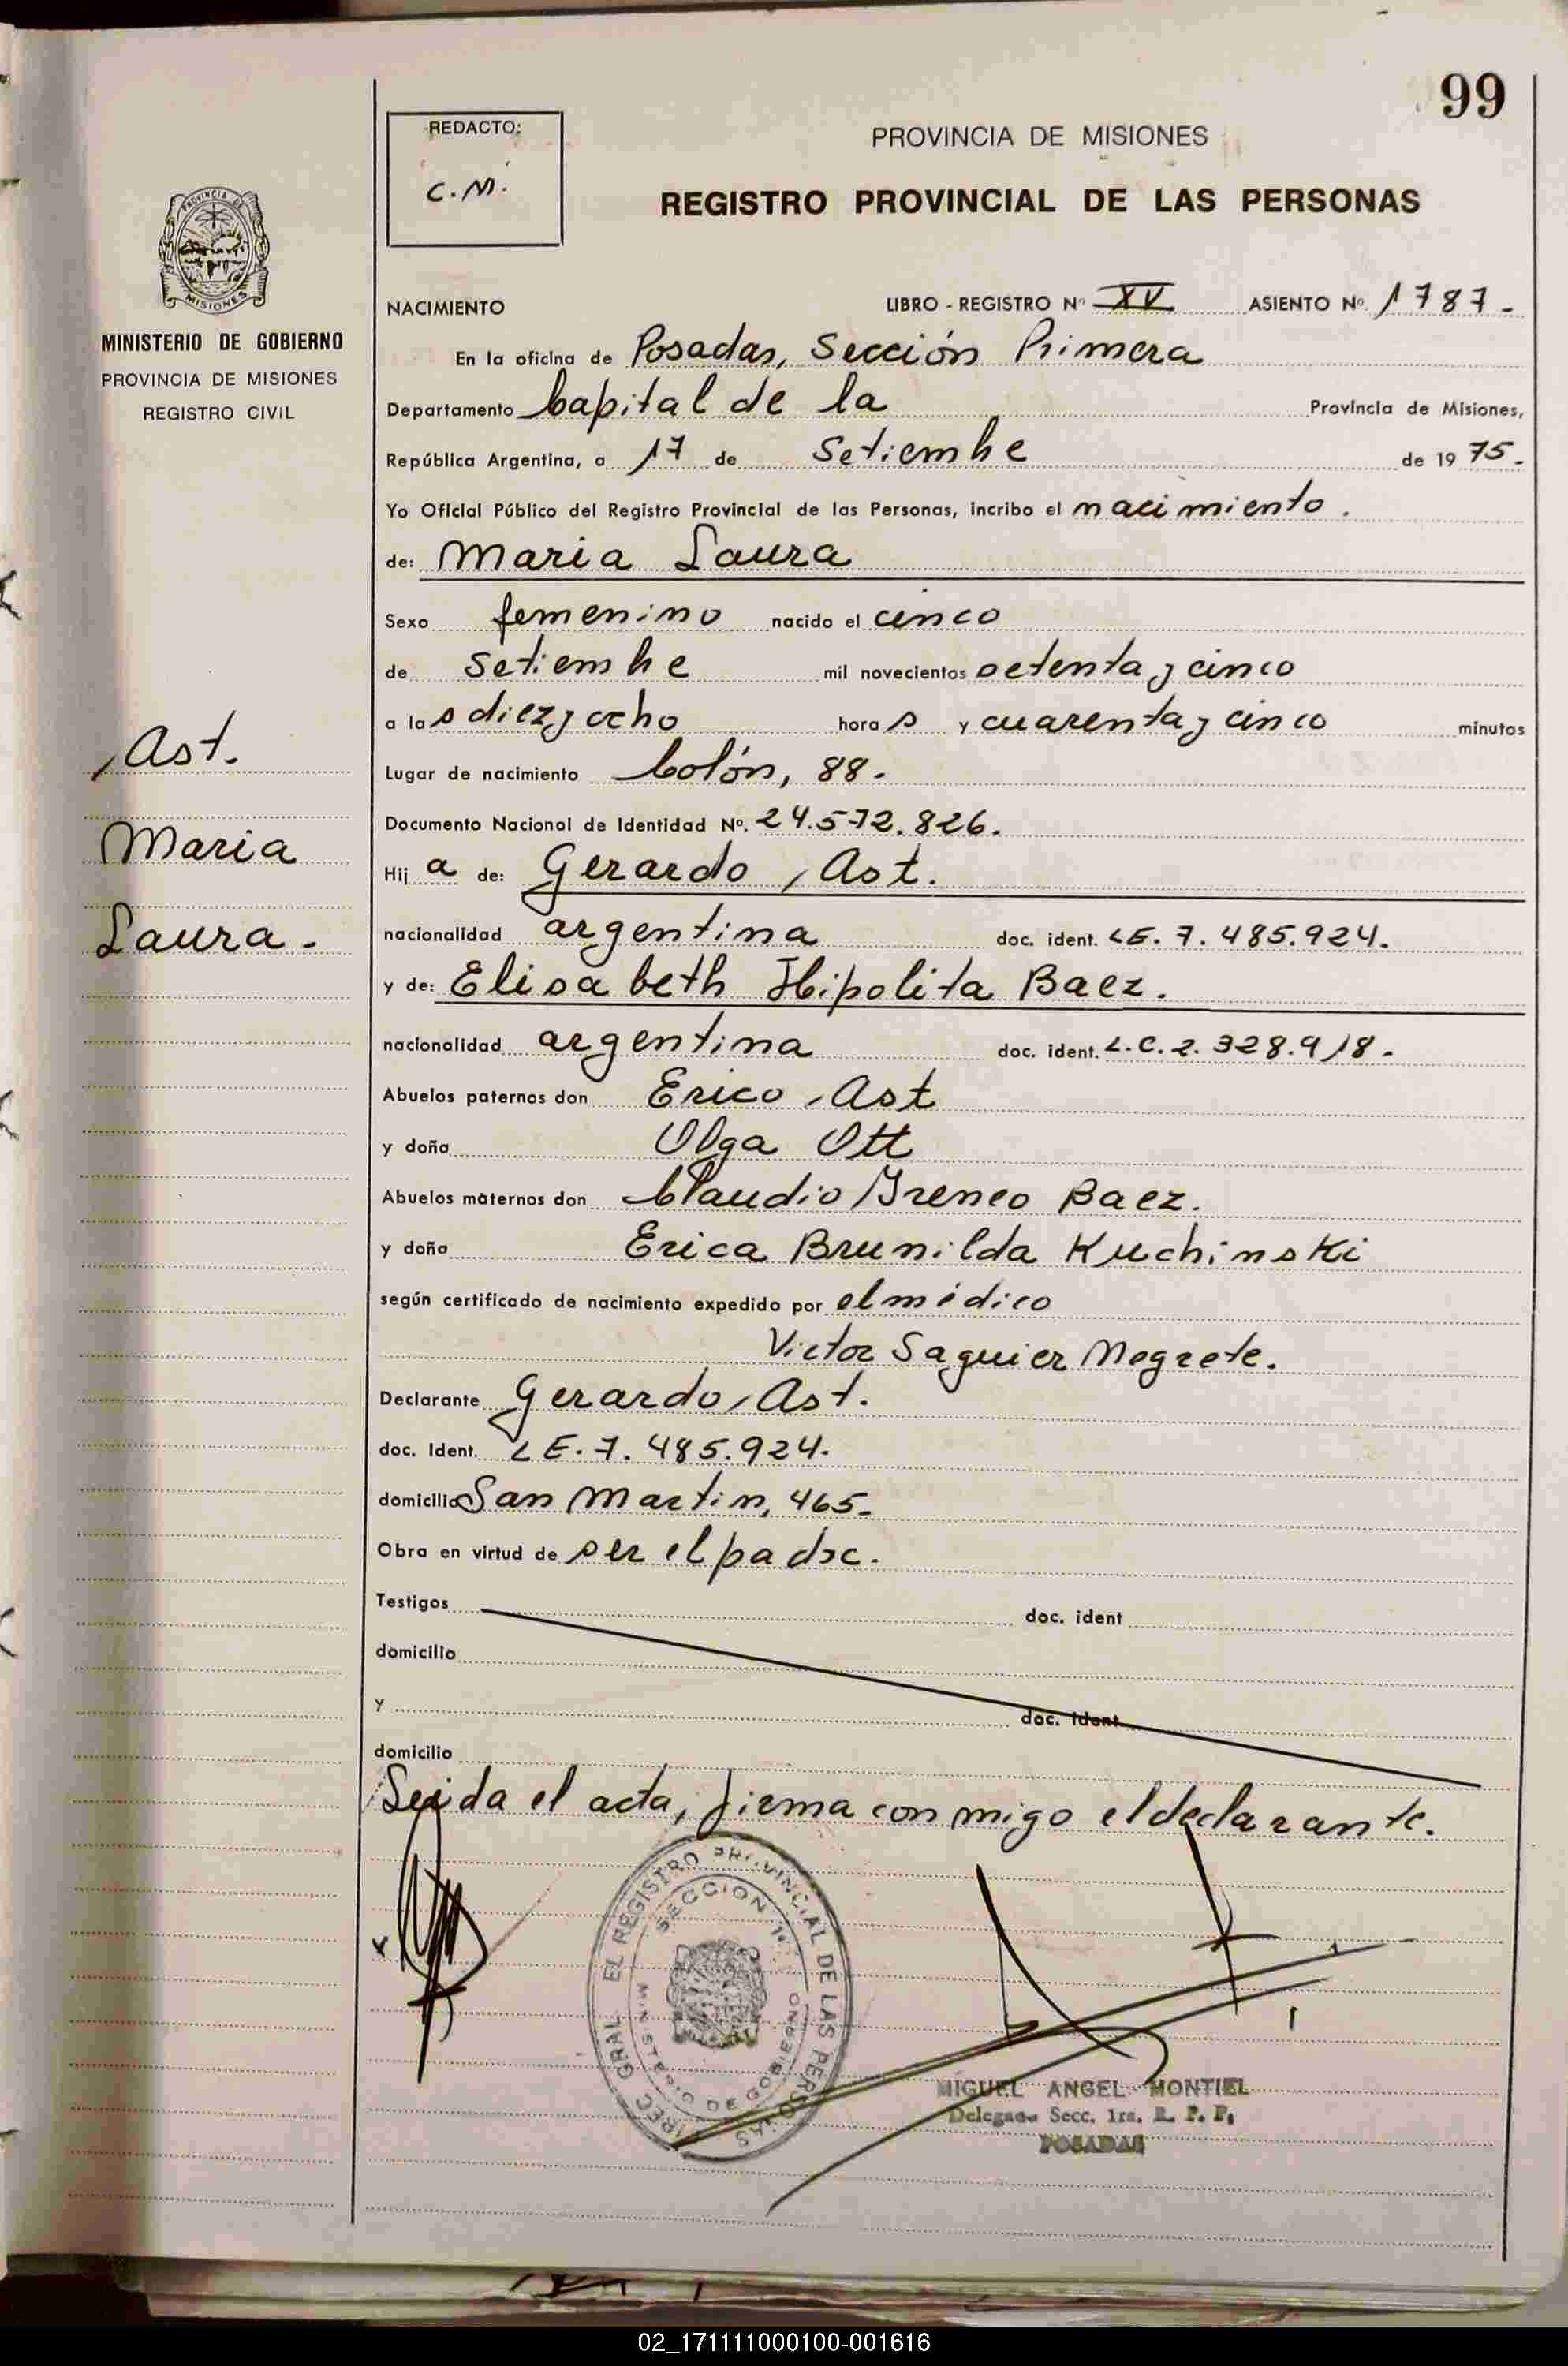 99
REDACTO:
C.M.
PROVINCIA DE MISIONES
REGISTRO PROVINCIAL DE LAS PERSONAS
PROVINCIA DE
MISIONES
MINISTERIO DE GOBIERNO
PROVINCIA DE MISIONES
REGISTRO CIVIL
NACIMIENTO LIBRO - REGISTRO Nº XV ASIENTO Nº 1787-
En la oficina de Posadas, Sección Primera
Departamento Capital de la Provincia de Misiones,
República Argentina, a 17 de Setiembre de 1975-
Yo Oficial Público del Registro Provincial de las Personas, incribo el nacimiento.
de: Maria Laura
Sexo femenino nacido el cinco
de Setiembre mil novecientos setenta y cinco
a las diez y ocho horas y cuarenta y cinco minutos
Lugar de nacimiento Colón, 88.
Documento Nacional de Identidad Nº. 24.572.826.
Hija de: Gerardo, Ast.
nacionalidad argentina doc. ident. LE. 7.485.924.
y de: Elisabeth Hipolita Baez.
nacionalidad argentina doc. ident. L.C. 2.328.918.
Abuelos paternos don Erico, Ast
y doña Olga Ott
Abuelos maternos don Claudio Ireneo Baez.
y doña Erica Brunilda Kuchinski
según certificado de nacimiento expedido por el médico
Victor Saguier Negrete.
Declarante Gerardo, Ast.
doc. Ident. LE. 7.485.924.
domicilio San Martin, 465-
Obra en virtud de ser el padre.
Testigos doc. ident
domicilio
y doc. ident
domicilio
Leida el acta, firma con migo el declarante.
, Ast.
Maria
Laura-
DIREC. GRAL. EL REGISTRO PROVINCIAL DE LAS PERSONAS
SECCION 1ª
MINISTERIO DE GOBIERNO
MIGUEL ANGEL MONTIEL
Delegado Secc. 1ra. R. P. P.
POSADAS
02_171111000100-001616